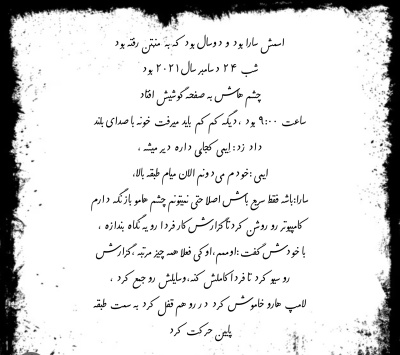 اسمش سارا بود و دوسال بود که به منتن رفته بود
شب ۲۴ دسامبر سال ۲۰۲۱ بود
چشم هاش به صفحه گوشیش افتاد
ساعت ۹:۰۰ بود ، دیگه کم کم باید میرفت خونه با صدای بلند
داد زد: ایمی کجایی داره دیر میشه ،
ایمی :خودم میدونم الان میام طبقه بالا.
سارا:باشه فقط سریع باش اصلا حتی نمیتونم چشم هامو باز نگه دارم
کامپیوتر رو روشن کرد تا گزارش کار فردا رو یه نگاه بندازه ،
با خودش گفت :اوممم،اوکی فعلا همه چیز مرتبه ،گزارش
رو سیو کرد تا فردا کاملش کنه،وسایلش رو جمع کرد ،
لامپ هارو خاموش کرد در رو هم قفل کرد به سمت طبقه
پایین حرکت کرد